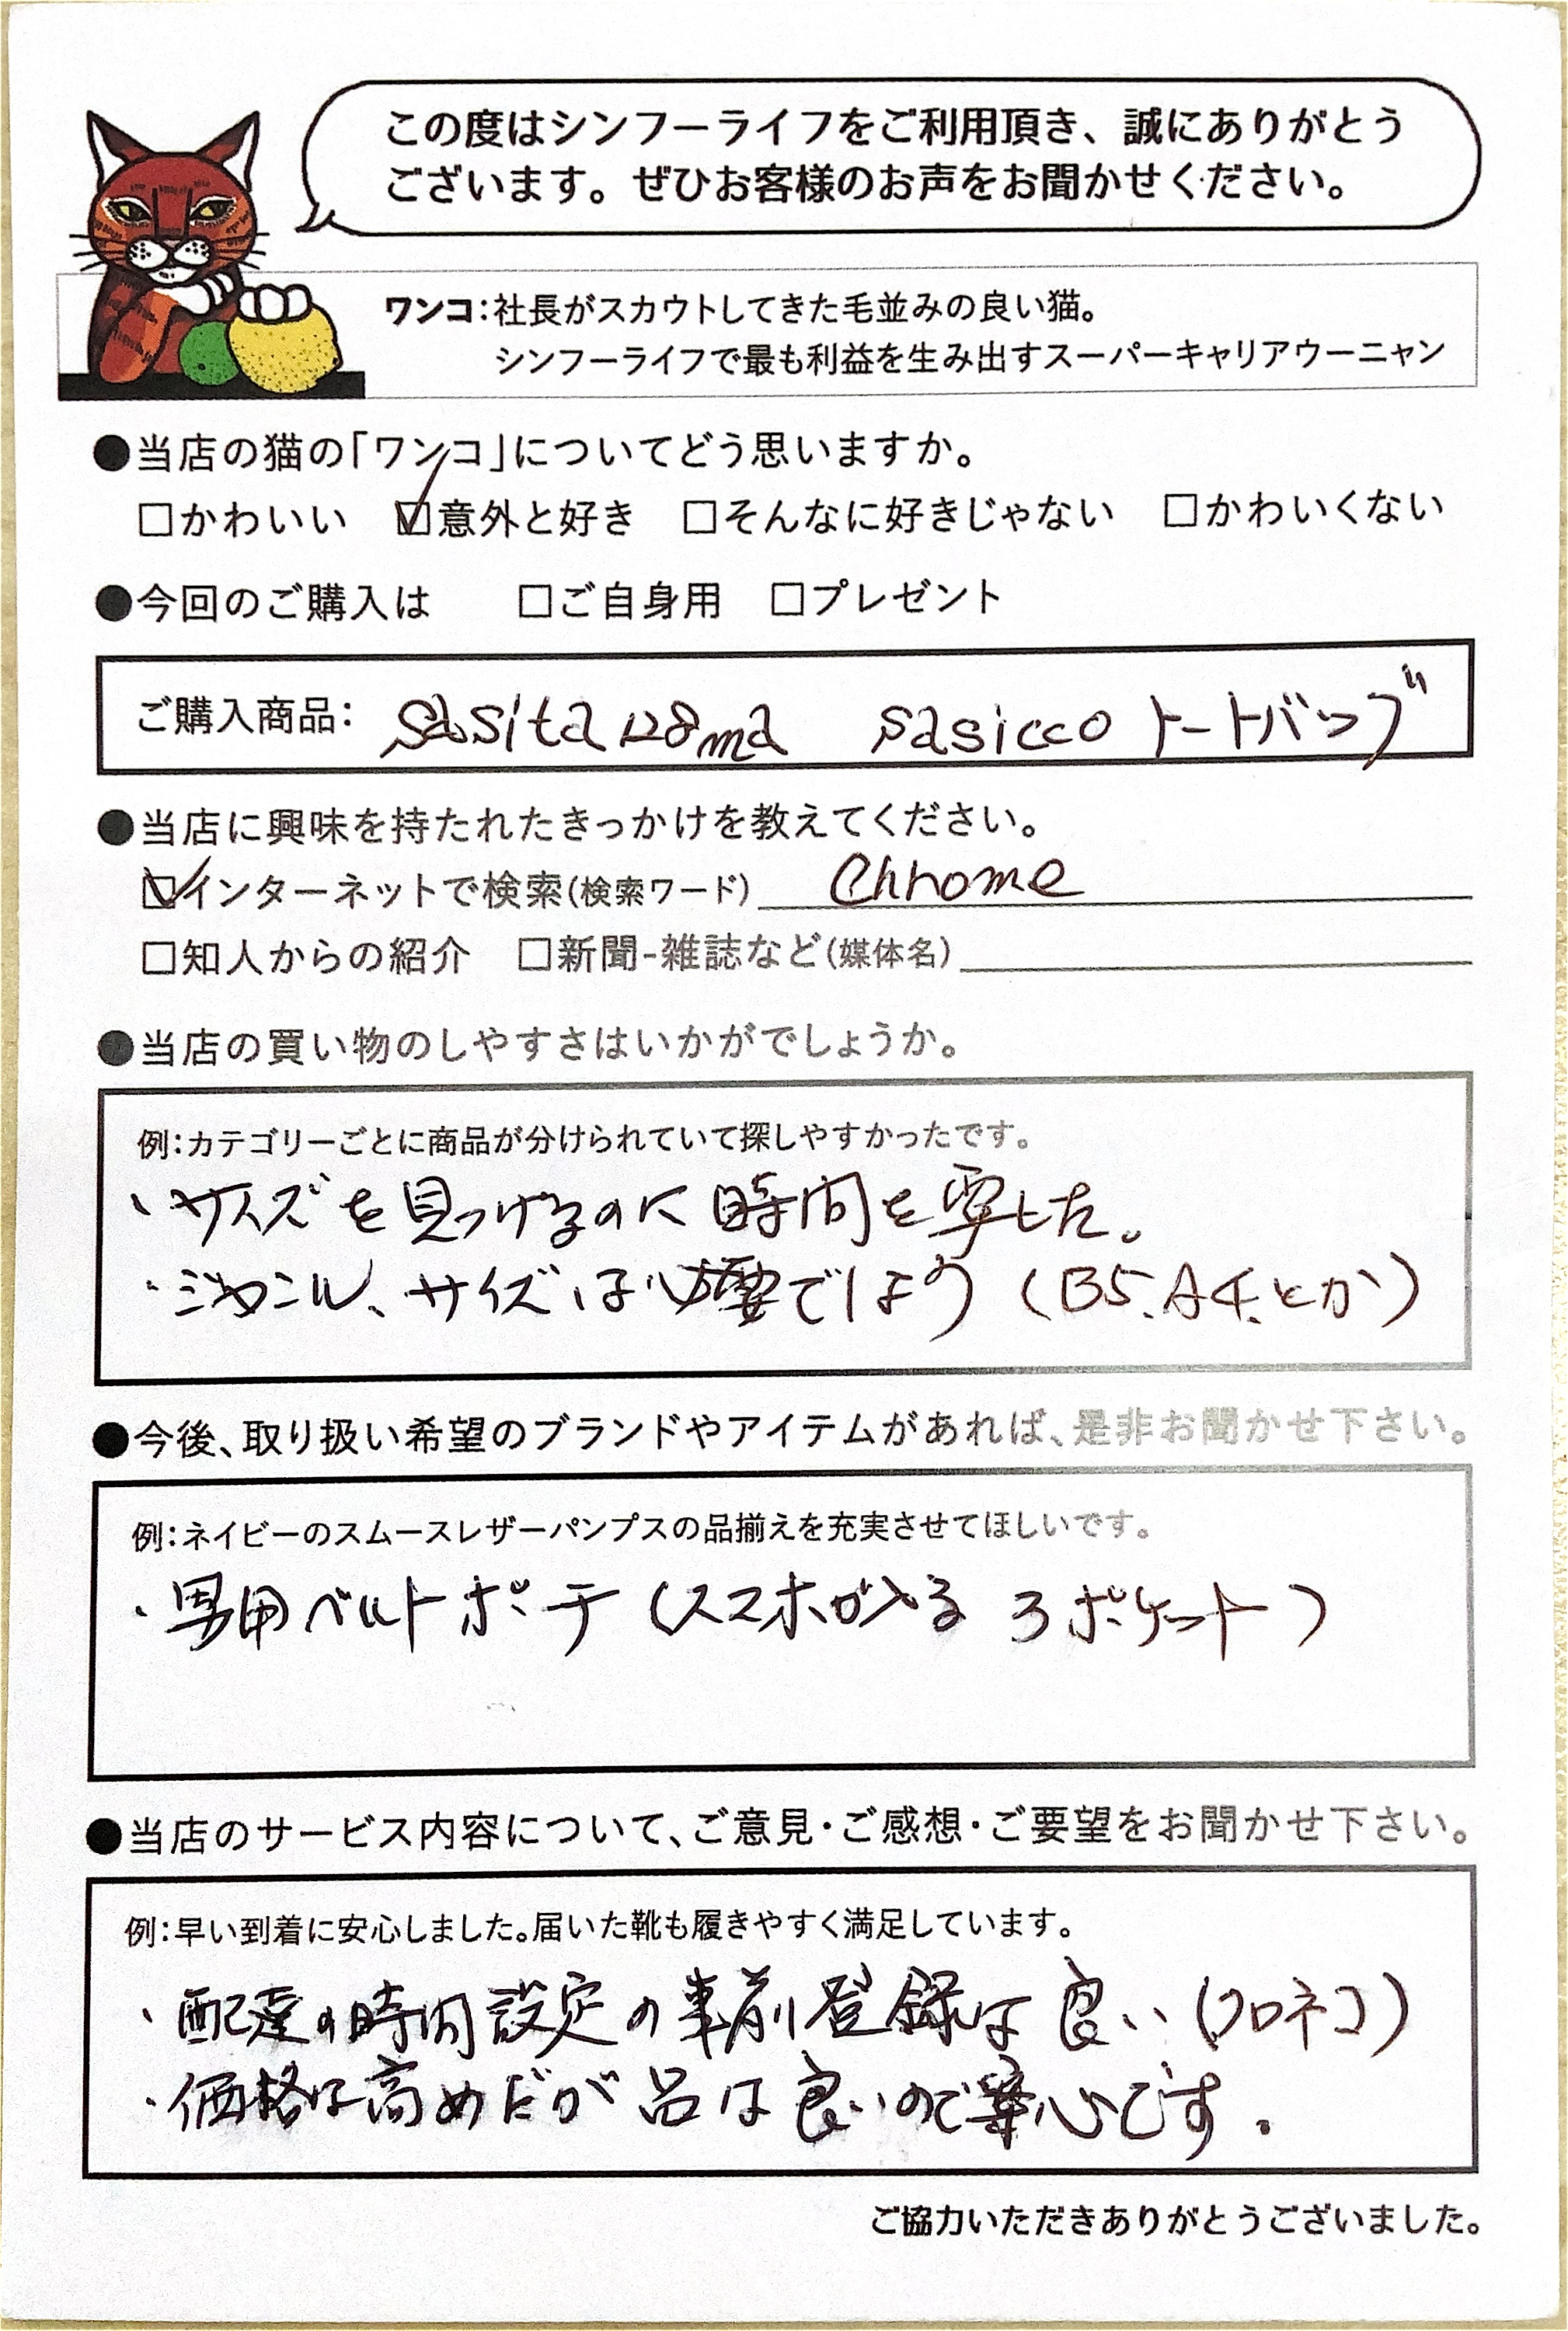 この度はシンフーライフをご利用頂き、誠にありがとう
ございます。ぜひお客様のお声をお聞かせください。
ワンコ：社長がスカウトしてきた毛並みの良い猫。
シンフーライフで最も利益を生み出すスーパーキャリアウーニャン
●当店の猫の「ワンコ」についてどう思いますか。
□かわいい ☑意外と好き □そんなに好きじゃない □かわいくない
●今回のご購入は □ご自身用 □プレゼント
ご購入商品： sasicco トートバッグ
●当店に興味を持たれたきっかけを教えてください。
☑インターネットで検索(検索ワード) Chrome
□知人からの紹介 □新聞-雑誌など(媒体名)
●当店の買い物のしやすさはいかがでしょうか。
例：カテゴリーごとに商品が分けられていて探しやすかったです。
・サイズを見つけるのに時間を要した。
・ジャンル、サイズは必要でしょう（B5、A4、とか）
●今後、取り扱い希望のブランドやアイテムがあれば、是非お聞かせ下さい。
例：ネイビーのスムースレザーパンプスの品揃えを充実させてほしいです。
・男用ベルトポーチ（スマホが入る 3ポケット）
●当店のサービス内容について、ご意見・ご感想・ご要望をお聞かせ下さい。
例：早い到着に安心しました。届いた靴も履きやすく満足しています。
・配達の時間設定の事前登録は良い（クロネコ）
・価格は高めだが品は良いので安心です。
ご協力いただきありがとうございました。